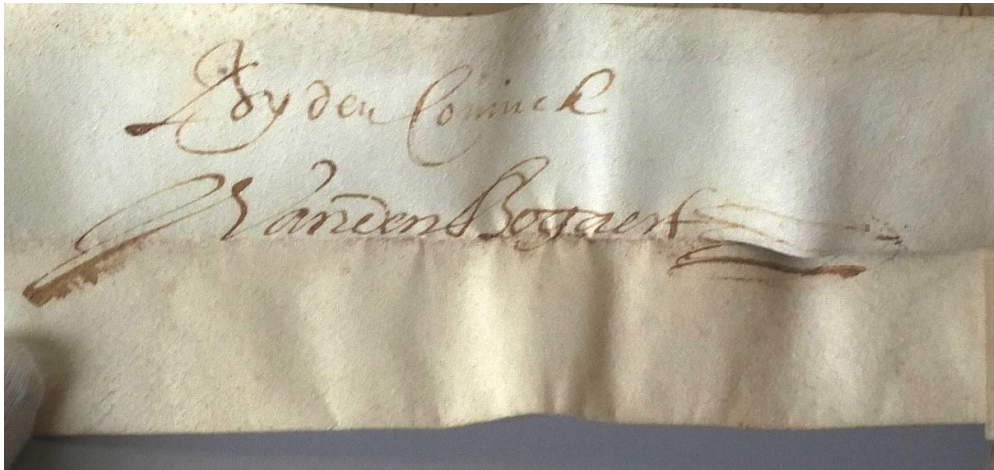 By den Coninck
VandenBogaert